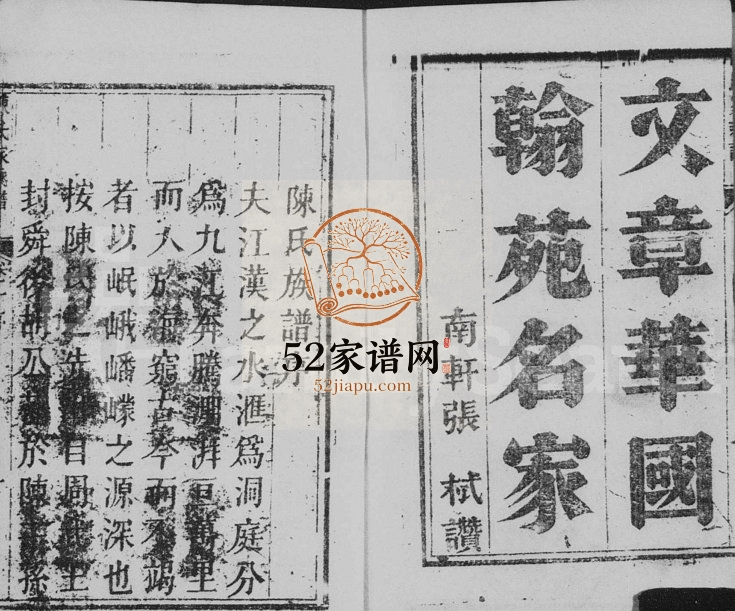 文章華國
翰苑名家
南軒張 栻讚
陳氏族譜序
夫江漢之水滙爲洞庭分
爲九江奔騰澎湃亘萬里
而入於海窮古今而不竭
者以岷峨嶓嶸之源深也
按陳氏之先出自周武王
封舜後胡公滿於陳子孫
52家谱网
52jiapu.com